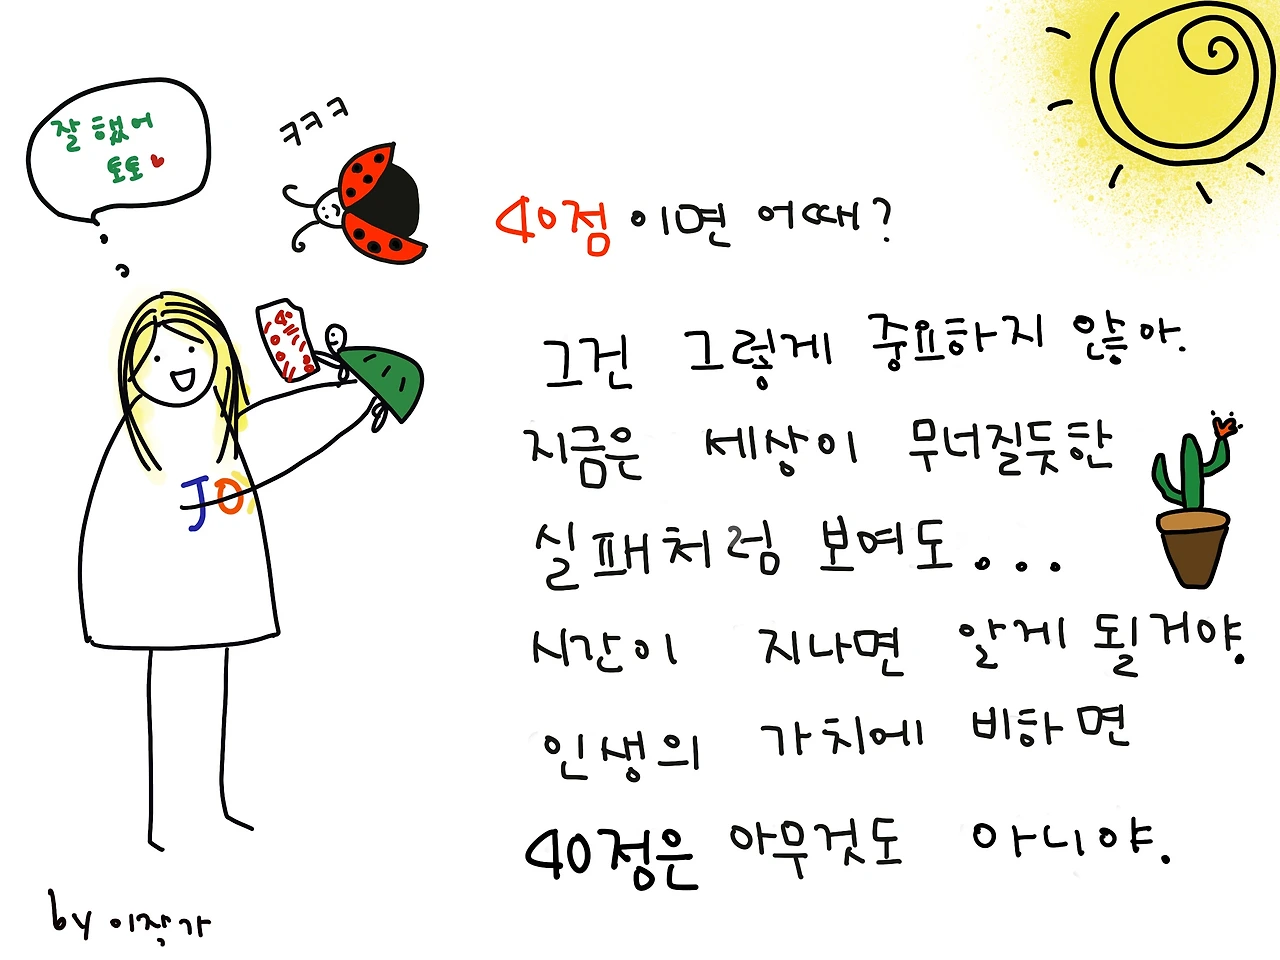 잘했어
토토
ㅋㅋㅋ
40점이면 어때?
그건 그렇게 중요하지 않아.
지금은 세상이 무너질듯한
실패처럼 보여도...
시간이 지나면 알게 될거야.
인생의 가치에 비하면
40점은 아무것도 아니야.
JOY
by 이작가